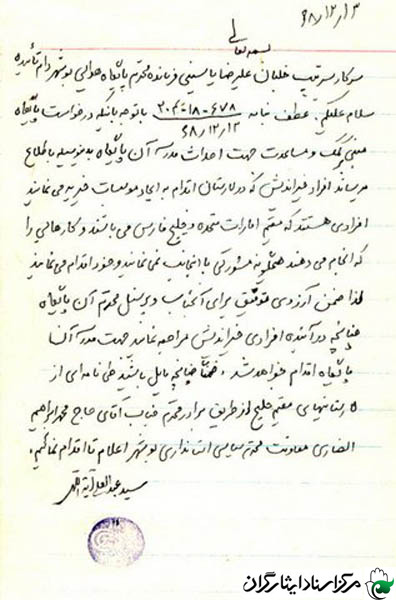 ۶۸/۱۲/۱۳
بسمه تعالی
سرکار سرتیپ خلبان علیرضا یاسینی فرمانده محترم پایگاه هوایی بوشهر دام تأییده
سلام علیکم. عطف بنامه ۶۷۸-۱۸-۳۰۴
۶۸/۱۲/۱۲ با توجه باینکه درخواست پایگاه
مبنی بر کمک و مساعدت جهت احداث مدرسه آن پایگاه بدینوسیله باطلاع
میرساند افراد خیراندیش که در لارستان اقدام به ایجاد موسسات خیریه می نمایند
افرادی هستند که مقیم امارات متحده و خلیج فارس می باشند و کارهائی را
که انجام می دهند هیچگونه مشورتی با اینجانب نمی نمایند و خود اقدام می نمایند
لذا ضمن آرزوی موفقیت برای آنجناب و پرسنل محترم آن پایگاه
چنانچه در آینده افرادی خیراندیش مراجعه نمایند جهت مدرسه آن
پایگاه اقدام خواهد شد. ضمناً چنانچه مایل باشید طی نامه ای از
لارستانیهای مقیم خلیج از طریق برادر محترم جناب آقای حاج محمد ابراهیم
انصاری معاونت محترم سیاسی استانداری بوشهر اعلام تا اقدام نمائیم.
سید عبدالعلی آیة اللهی
مرکز اسناد ایثارگران